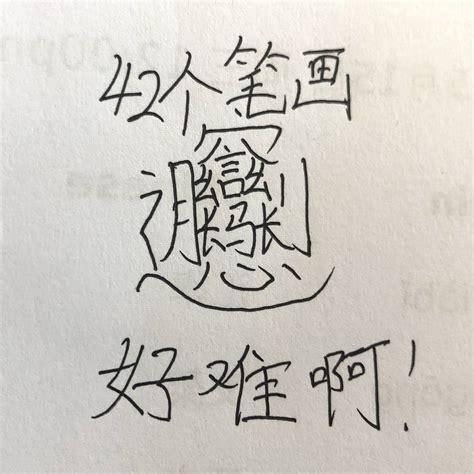 42个笔画
𰻝
好难啊!